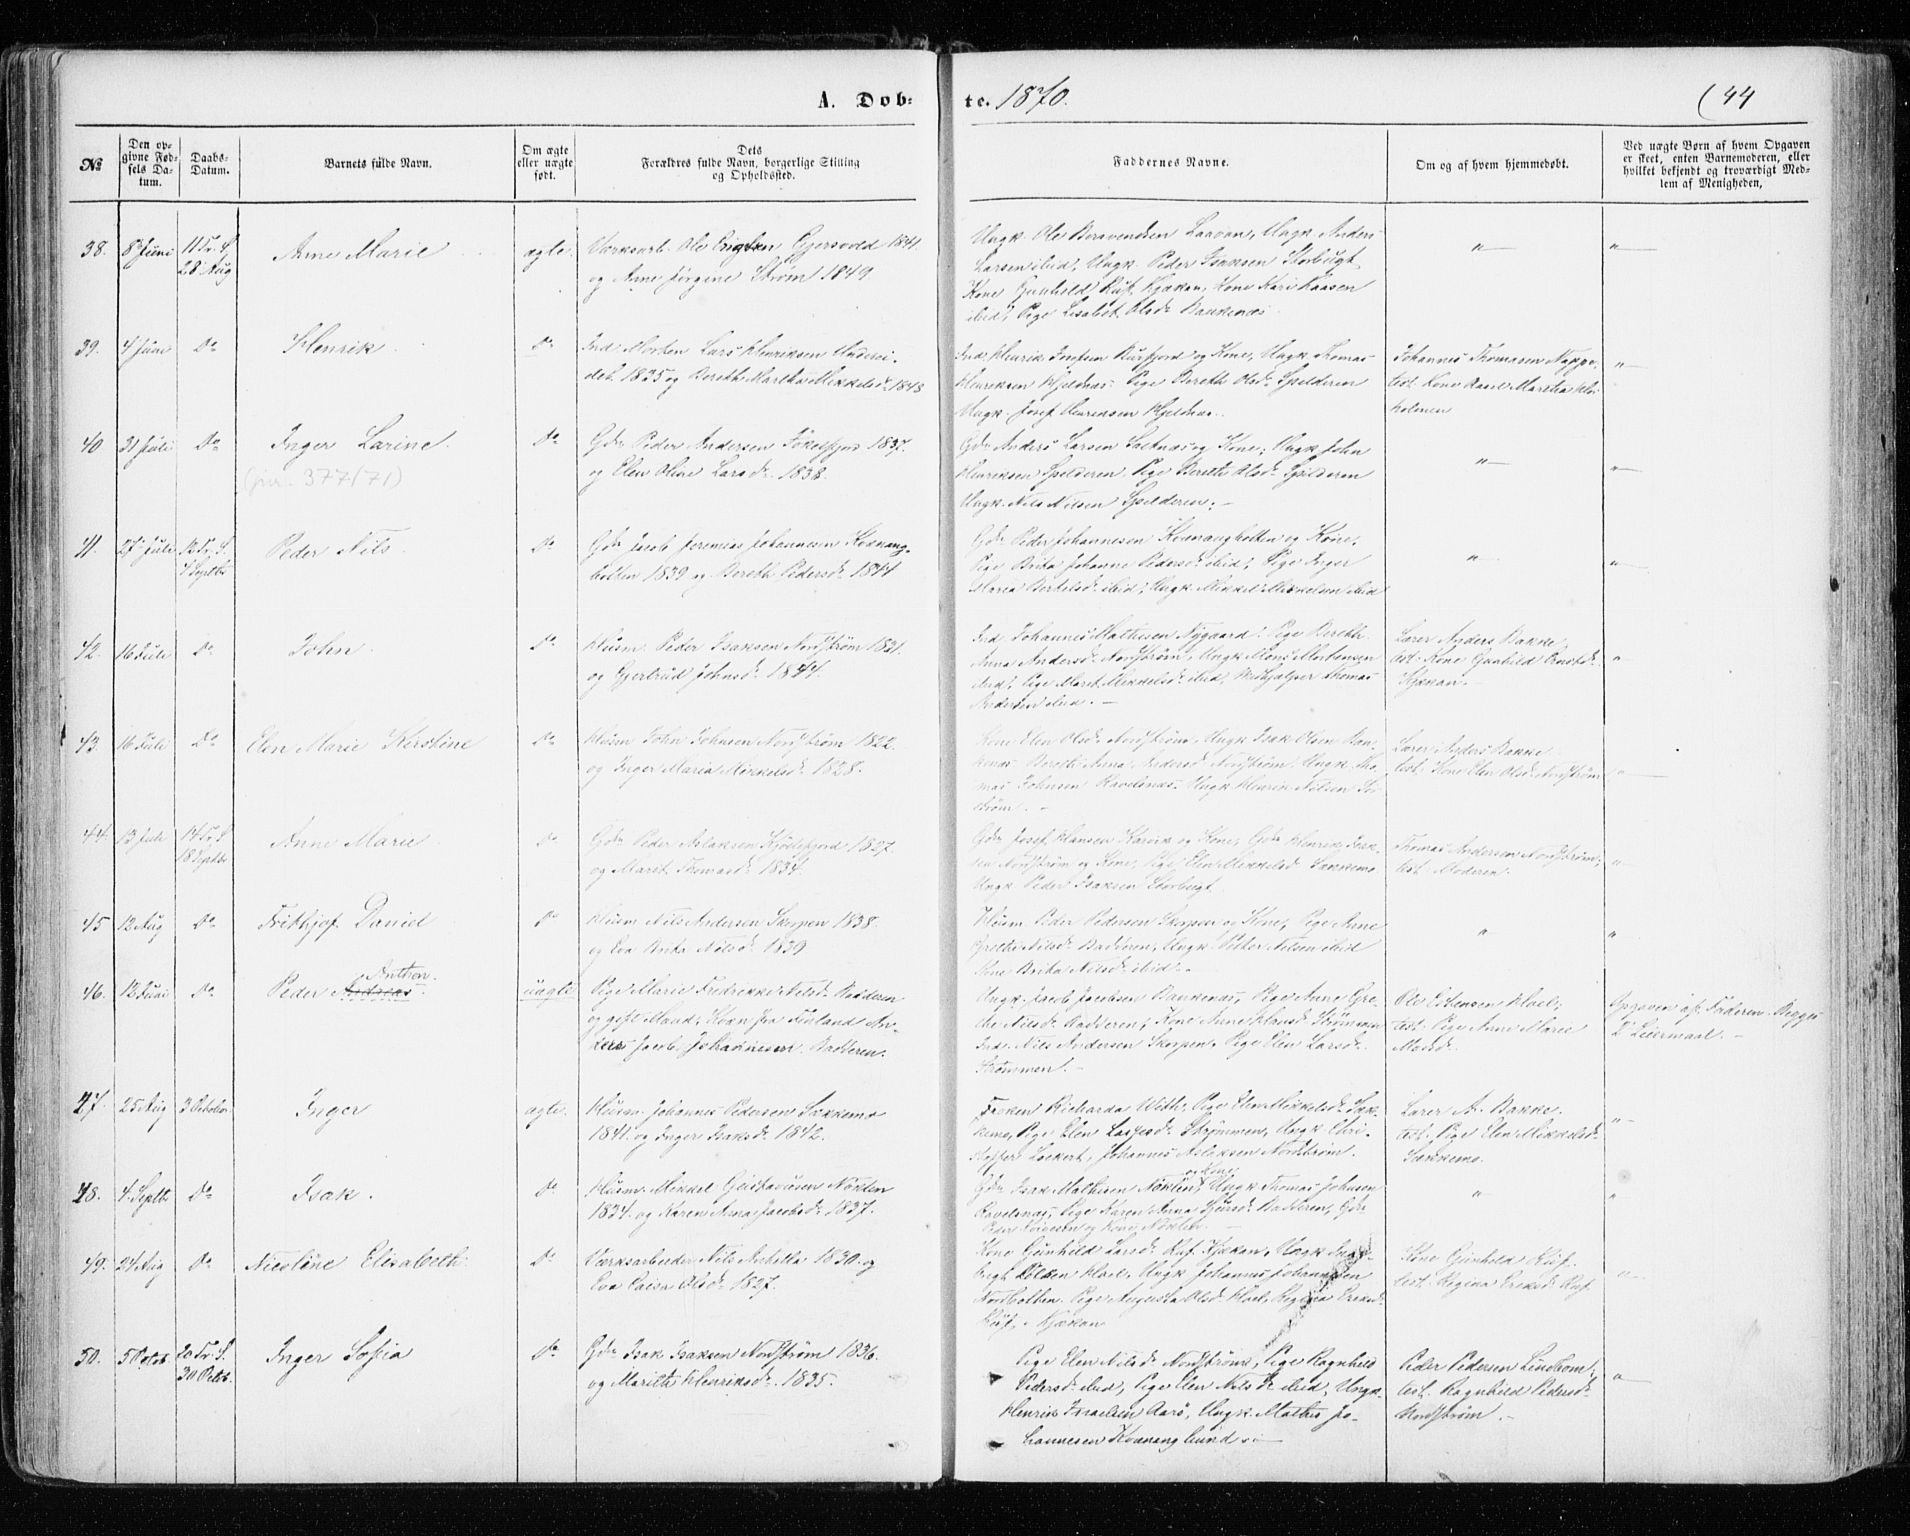 A. Døb-
te. 1870.
(44
No
Den op-
givne Fød-
sels Da-
tum.
Daabs-
Datum.
Barnets fulde Navn.
Om ægte
eller uægte
født.
Dets
Forældres fulde Navn, borgerlige Stilling
og Opholdssted.
Faddernes Navne.
Om og af hvem hjemmedøbt.
Ved uægte Børn af hvem Opgaven
er skeet, enten Barnemoderen, eller
hvilket bekjendt og troværdigt Med-
lem af Menigheden,
38. 8 Juni 11 Tr. S. 28 Aug Anne Marie ægte.
og Anne Jørgine Strøm 1849
Ungk. Ole
Larsen ibid, Ungk. Peder Isaksen Storbugt
Kone Gunhild Ruf Kjækan, Kone Kari Kaasen
ibid, Pige Lisabet Olsd. Baukenæs
39. 4 Juni Do Henrik Do
Ind. Morten Lars Henriksen
1835 og Bereth Martha Mikkelsd. 1843
Henriksen Hjeldnæs. Pige Bereth Olsd. Spilderen
Ungk. Josef Henriksen Hjeldnæs.
Johannes Thomasen
test. Kone
holmen
40 31 Juli Do Inger Larine. Do
(jvr. 377/71)
Gdr Peder Andersen Jøkelfjord 1837.
og Elen Oline Larsd. 1838.
Gdr Anders Larsen Saltnæs og Kone, Ungk. John
Henriksen Spilderen, Pige Bereth Olsd. Spilderen
Ungk. Nils Nilsen Spilderen.
41. 27 Juli 12 Tr. S. 4 Septbr Peder Nils. Do
Gdr Jacob Jeremias Johannesen Kvænang-
botten 1839 og Bereth Pedersd. 1844
Gdr Peder Johannesen Kvænangbotten og Kone,
Pige Brita Johanne Pedersd. ibid, Pige Inger
Maria Bertelsd. ibid, Ungk. Mikkel Mikkelsen ibid
42. 16 Juli Do John. Do
Husm. Peder Isaksen Nordstrøm 1821.
og Gjertrud Johnsd. 1844.
Ind. Johannes Mathisen Nygaard. Pige Bereth
Anna Andersd. Nordstrøm, Ungk. Mons Mortensen
ibid, Pige Maret Mikkelsd. ibid, Thomas
Andersen ibid.
Lærer Anders Bakke,
test. Kone Gunhild
Kjækan.
43. 16 Juli Do Elen Marie Kirstine Do
Husm John Johnsen Nordstrøm 1822.
og Inger Maria Mikkelsd. 1828.
Kone Elen Olsd. Nordstrøm, Ungk. Isak Olsen Bau-
kenæs Bereth Anna Andersd. Nordstrøm, Ungk. Tho-
mas Johnsen Ravelsnæs. Ungk. Henrik Nilsen
strøm.
Lærer Anders Bakke
test. Kone Elen Olsd. Nordstrøm
44. 13 Juli 14 Tr. S 18 Septbr Anne Marie Do
Gdr Peder Aslaksen 1827.
og Maret Thomasd. 1834.
Gdr Josef Hansen Karvik og Kone, Gdr Henrik Isak-
sen Nordstrøm og Kone, Pige Elen Mikkelsd. Sækkemo
Ungk. Peder Isaksen Storbugt
Thomas Andersen Nordstrøm,
test. Moderen.
45 12 Aug Do Frithjof Daniel Do
Husm Nils Andersen Skorpen 1838.
og Eva Brita Nilsd. 1839
Husm. Peder Pedersen Skorpen og Kone, Pige Anne
Grethe Nilsd. Badderen, Ungk. Peder Nilsen ibid
Kone Brita Nilsd. ibid.
46. 12 Juni Do Peder Andreas Anthon. uægte
Pige Marie Fredrikke Nilsd. Badderen
og gift Mand, Kvæn fra Finland An-
ders Jacob Johannesen, Badderen.
Ungk. Jacob Jacobsen Baukenæs, Pige Anne Gre-
the Nilsd. Badderen, Kone Anne Hansd. Strømmen
Ind. Nils Andersen Skorpen, Pige Elen Larsd.
Strømmen.
Ole Hoel,
test. Pige Anne Marie
Madsd.
Opgaven af Faderen. Begges
2' Leiermaal.
47. 25 Aug 3 October Inger ægte.
Husm. Johannes Pedersen Sækkemo
1841. og Inger Isaksd. 1842.
Frøken Richarda With, Pige Elen Mikkelsd. Sæk-
kemo, Pige Elen Strømmen, Ungk. Chri-
stoffer Lockert, Johannes Aslaksen Nordstrøm.
Lærer A. Bakke.
test. Pige Elen Mikkelsd.
Sækkemo.
48. 4. Septbr. Do Isak. Do
Husm. Mikkel Gustavusen Nøklen
1834. og Karen Anna Jacobsd. 1837.
og Kone
Gdr Isak Mathisen Nøklen, Ungk. Thomas Johnsen
Ravelsnæs, Pige Karen Anna Badderen, Gdr
Peder og Kone, Nøklen.
49. 24 Aug Do Nicoline Elisabeth Do
Værksarbeider Nils 1830 og
Eva Caisa Olsd. 1827.
Kone Gunhild Larsd. Ruf Kjækan, Ungk. Inge-
Hoel, Ungk. Johannes Johannesen
Nordbotten. Pige Augusta Olsd. Hoel, Regina Eriksd.
Ruf. Kjækan
Kone Gunhild Ruf.
test. Regina Eriksd. Ruf.
50. 5 Octob. 20 Tr. S. 30 Octob. Inger Sofia Do
Gdr Isak Isaksen Nordstrøm 1836.
og Maritta Henriksd. 1835.
Pige Elen Nilsd. Nordstrøm, Pige Ragnhild
Pedersd. ibid, Pige Elen Nilsd. ibid, Ungk.
Henrik Israelsen Aarø, Ungk. Mathis Jo-
hannesen Kvænangbund
Peder Pedersen Lindbom,
test. Ragnhild Pedersd.
Nordstrøm.